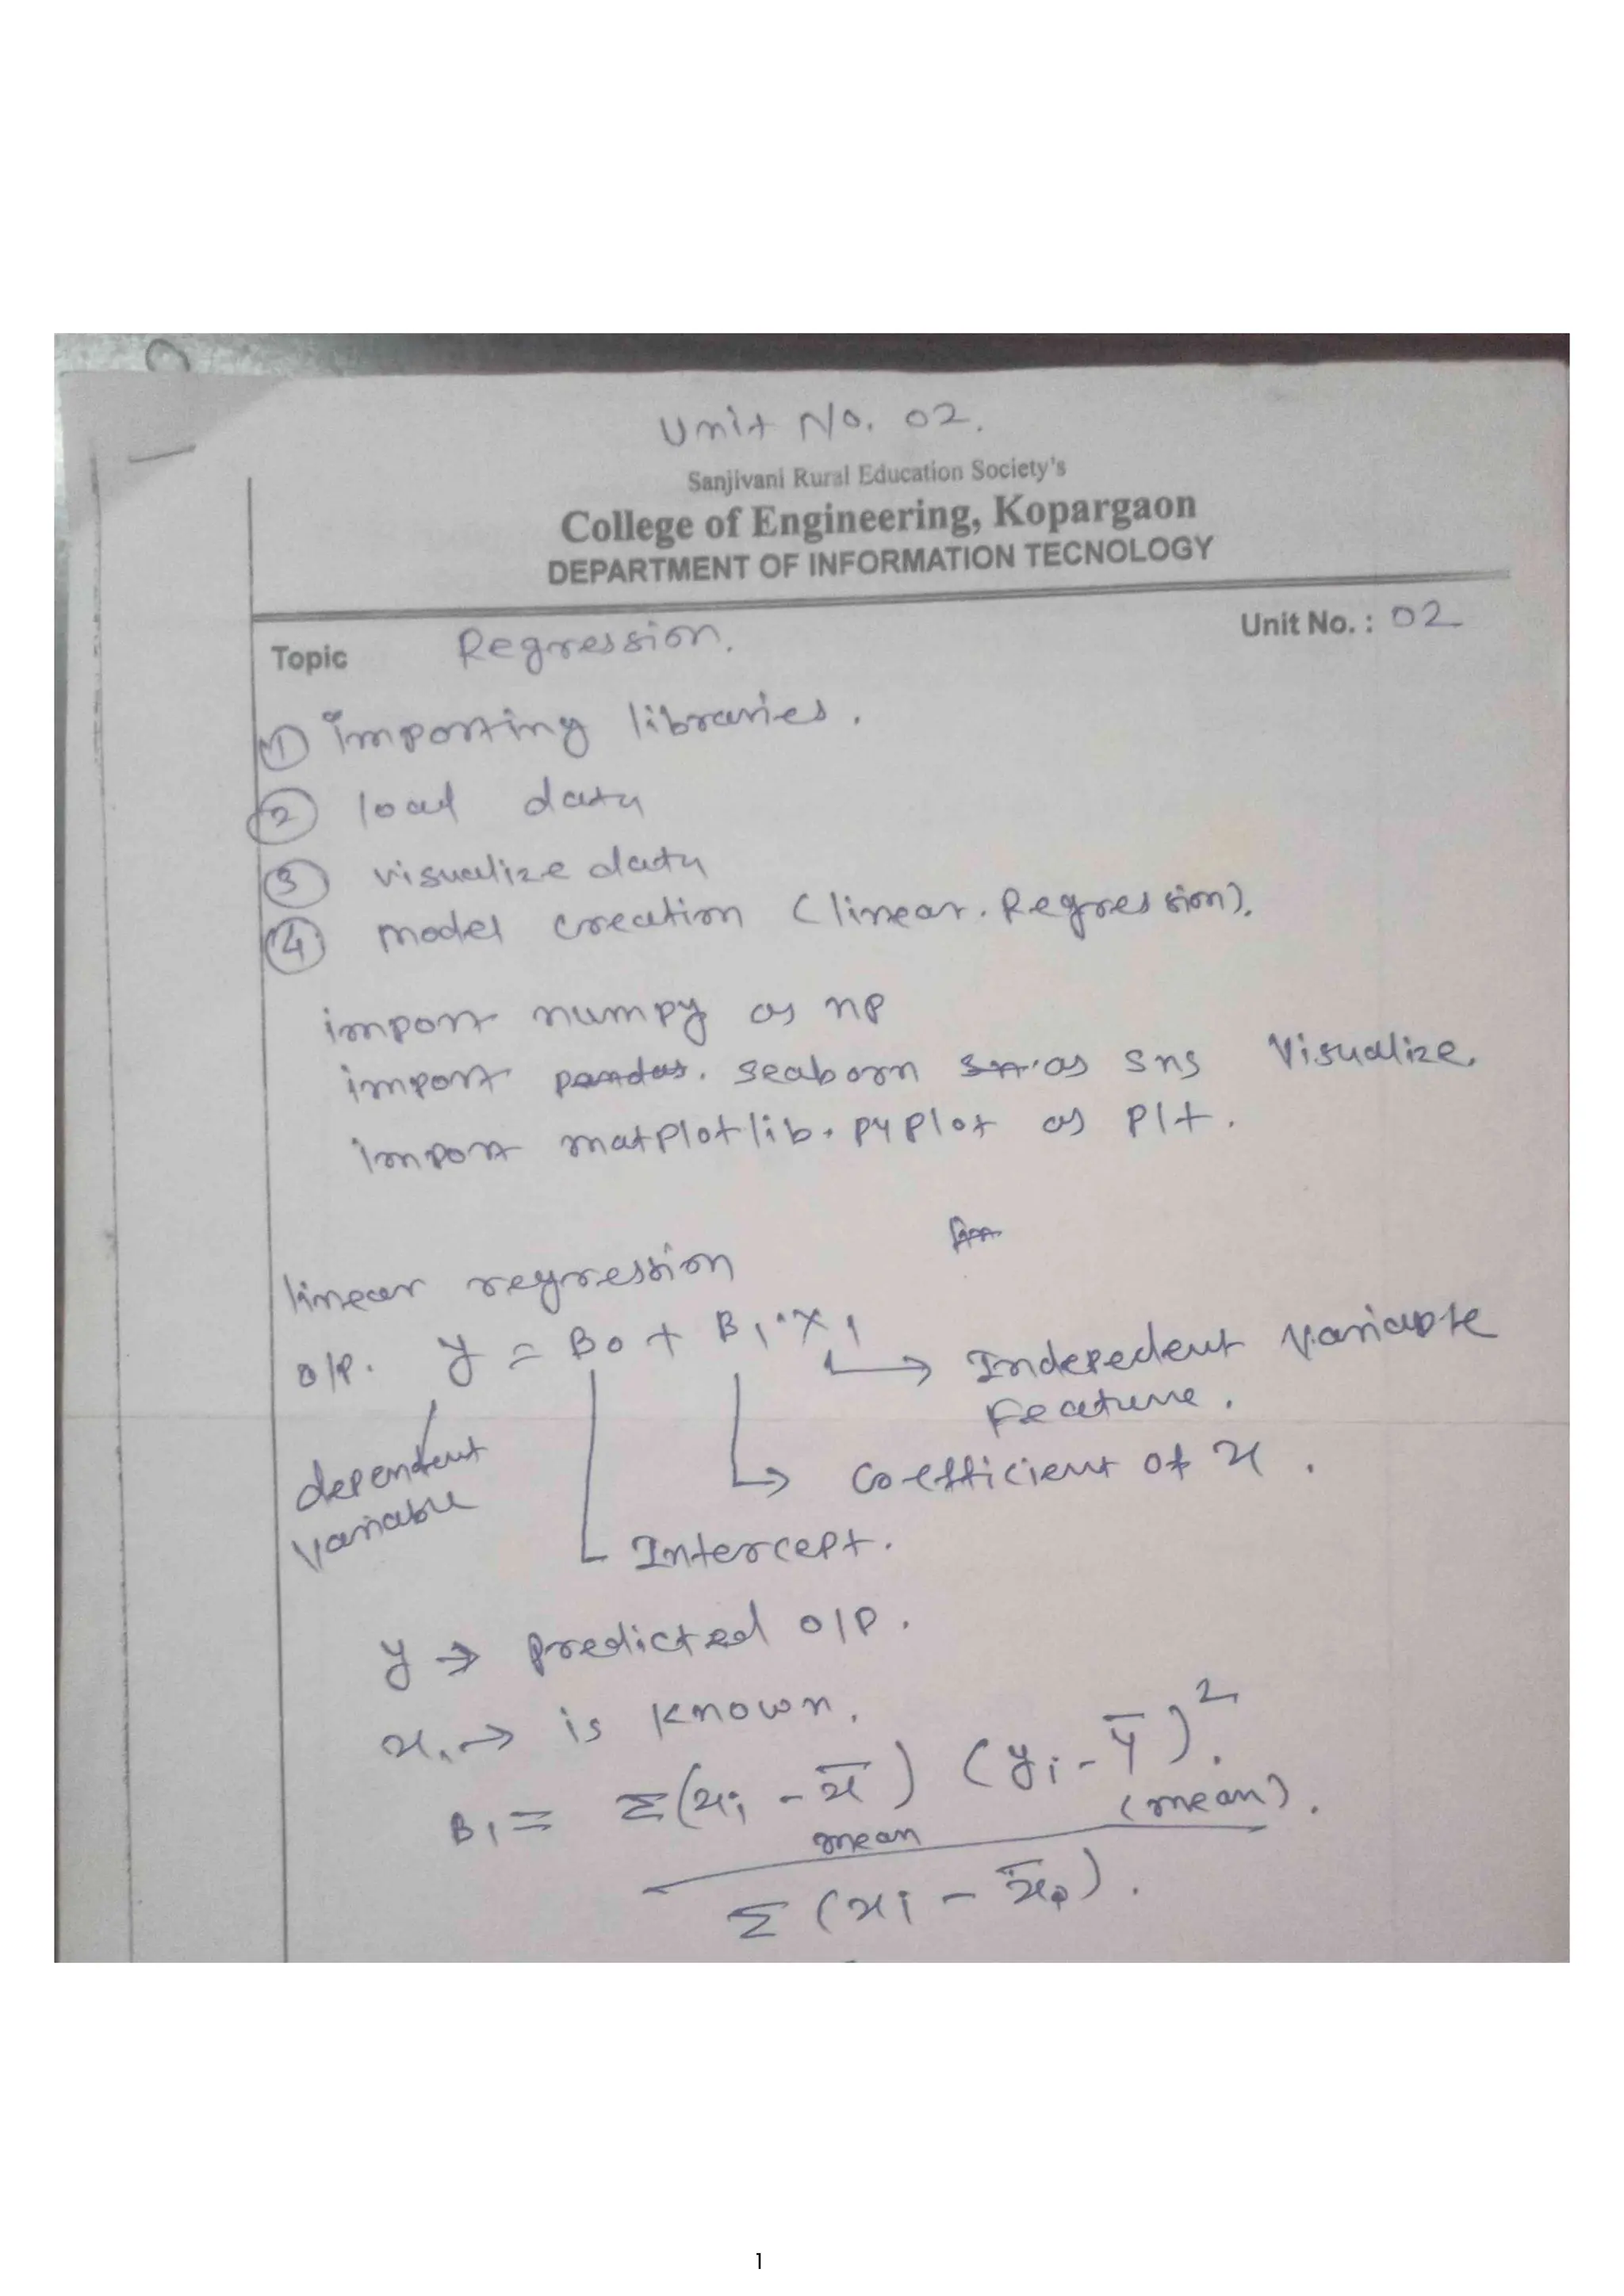 Unit No. 02.
Sanjivani Rural Education Society's
College of Engineering, Kopargaon
DEPARTMENT OF INFORMATION TECNOLOGY
Topic Regression. Unit No. : 02
① importing libraries.
② load data
③ visualize data
④ model creation (linear. Regression).
import numpy as np
import pandas. seaborn sn as sns Visualize.
import matplotlib.pyplot as plt.
linear regression
o/p. y = B0 + B1.x1
→ Indepedent variable
Feature.
dependent
variable
→ Coefficient of x.
Intercept.
y → predicted o/p.
x1 → is known.
B1 = Σ(xi - x̄) (yi - ȳ)².
mean (mean).
Σ (xi - x̄).
1